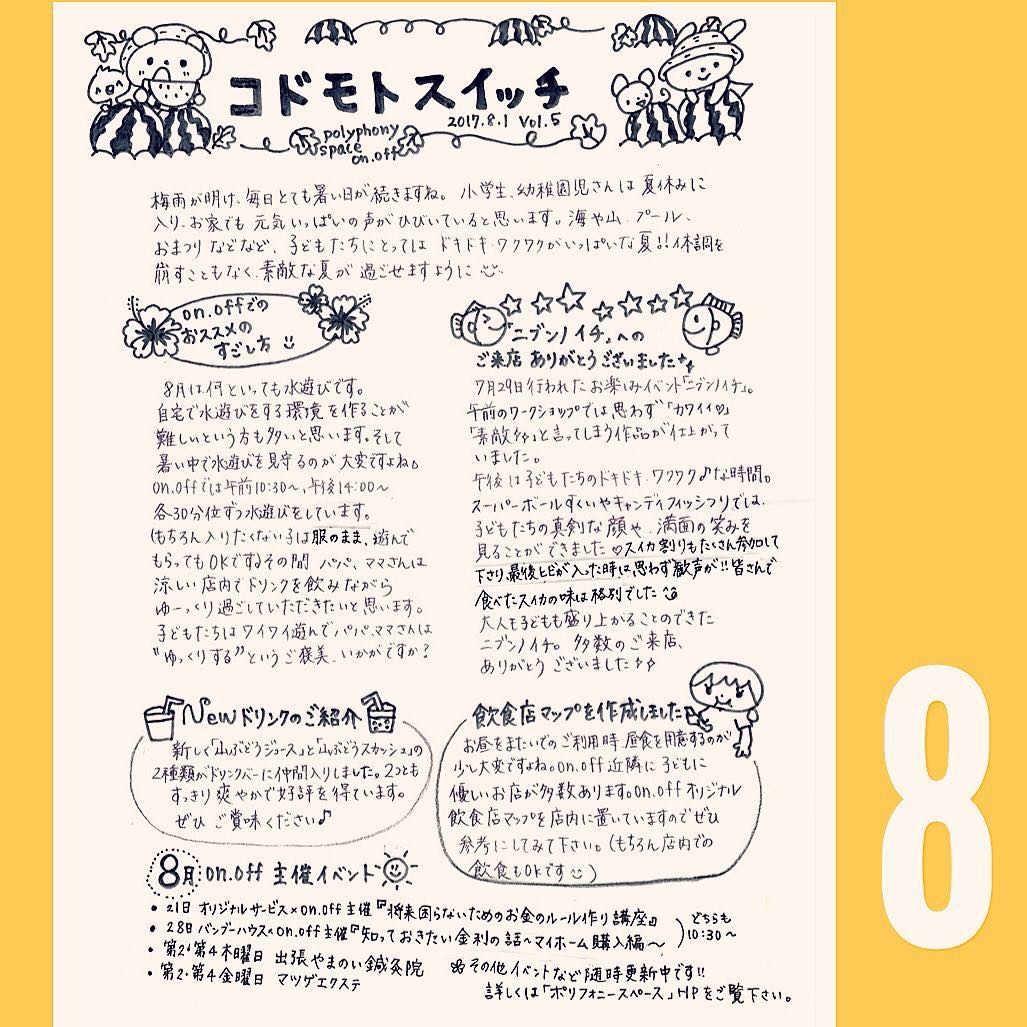 コドモトスイッチ
2017.8.1 Vol.5
polyphony
space
on.off
梅雨が明け、毎日とても暑い日が続きますね。小学生、幼稚園児さんは夏休みに
入り、お家でも元気いっぱいの声がひびいていると思います。海や山、プール、
おまつりなどなど、子どもたちにとってはドキドキ・ワクワクがいっぱいな夏!!体調を
崩すこともなく、素敵な夏が過ごせますように
on.offでの
おススメの
すごし方
8月は何といっても水遊びです。
自宅で水遊びをする環境を作ることが
難しいという方も多いと思います。そして
暑い中で水遊びを見守るのが大変ですよね。
on.offでは午前10:30～、午後14:00～
各30分位ずつ水遊びをしています。
(もちろん入りたくない子は服のまま、遊んで
もらってもOKです)その間 パパ、ママさんは
涼しい店内でドリンクを飲みながら
ゆーっくり過ごしていただきたいと思います。
子どもたちはワイワイ遊んでパパ、ママさんは
"ゆっくりする"というご褒美、いかがですか?
「ニブンノイチ」への
ご来店 ありがとうございました
7月29日行われたお楽しみイベント「ニブンノイチ」。
午前のワークショップでは思わず「カワイイ♡」
「素敵」と言ってしまう作品が仕上がって
いました。
午後は子どもたちのドキドキ、ワクワク♪な時間。
スーパーボールすくいやキャンディフィッシュつりでは、
子どもたちの真剣な顔や、満面の笑みを
見ることができました♡スイカ割りもたくさん参加して
下さり、最後ヒビが入った時は思わず歓声が!!皆さんで
食べたスイカの味は格別でした
大人も子どもも盛り上がることのできた
ニブンノイチ。多数のご来店、
ありがとうございました
Newドリンクのご紹介
新しく「山ぶどうジュース」と「山ぶどうスカッシュ」の
2種類がドリンクバーに仲間入りしました。2つとも
すっきり爽やかで好評を得ています。
ぜひ ご賞味ください♪
飲食店マップを作成しました
お昼をまたいでのご利用時、昼食を用意するのが
少し大変ですよね。on.off近隣に子どもに
優しいお店が多数あります。on.offオリジナル
飲食店マップを店内に置いていますのでぜひ
参考にしてみて下さい。(もちろん店内での
飲食もOKです)
8月 on.off 主催イベント
• 21日 オリジナルサービス×on.off主催『将来困らないためのお金のルール作り講座』
• 28日 バンブーハウス×on.off主催『知っておきたい金利の話～マイホーム購入編～
どちらも
10:30～
• 第2・第4木曜日 出張やまのい鍼灸院
• 第2・第4金曜日 マツゲエクステ
その他イベントなど随時更新中です!!
詳しくは「ポリフォニースペース」HPをご覧下さい。
8